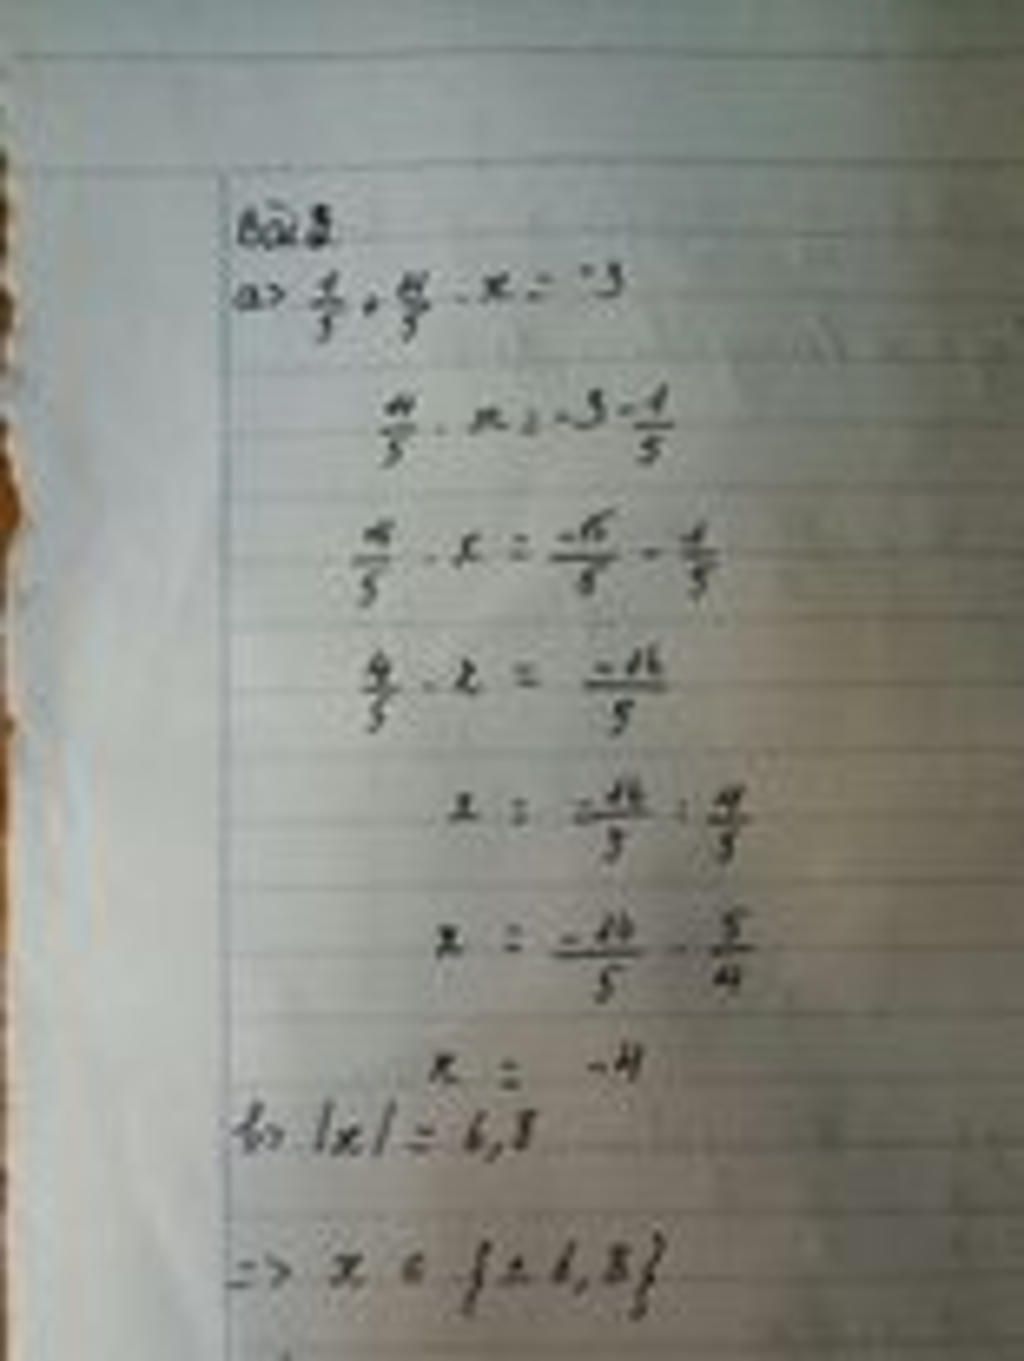 Bài 2
a> 1/5 + 4/5 . x = -3
4/5 . x = -3 - 1/5
4/5 . x = -15/5 - 1/5
4/5 . x = -16/5
x = -16/5 : 4/5
x = -16/5 . 5/4
x = -4
b> |x| = 6,8
=> x ∈ {± 6,8}